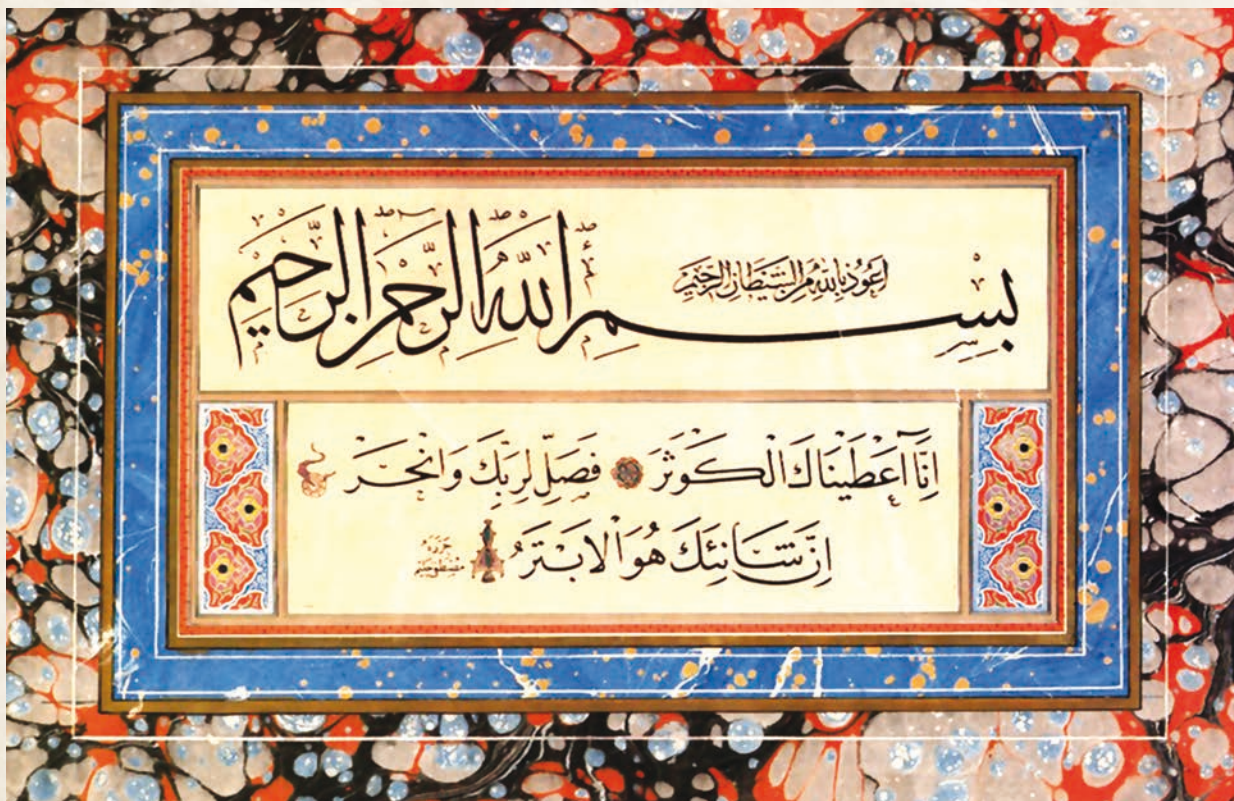 اعوذ بالله من الشيطان الرجيم
بِسْمِ اللّٰهِ الرَّحْمٰنِ الرَّحِيمِ
اِنَّٓا اَعْطَيْنَاكَ الْكَوْثَرَ فَصَلِّ لِرَبِّكَ وَانْحَرْ
اِنَّ شَانِئَكَ هُوَ الْاَبْتَرُ
حرره
مصطفى حليم